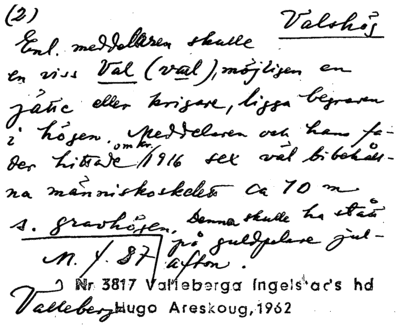 (2) Valshög
Enl. meddelaren skulle
en viss Val (val), möjligen en
jätte eller krigare, ligga begraven
i högen. Meddelaren och hans fa-
der hittade omkr. 1916 sex väl bibehåll-
na människoskelett ca 10 m
s. gravhögen. Denna skulle ha stått
på guldpelare jul-
afton.
M. f. 87
Nr 3817 Valleberga Ingelstad's hd
Valleberg Hugo Areskoug, 1962